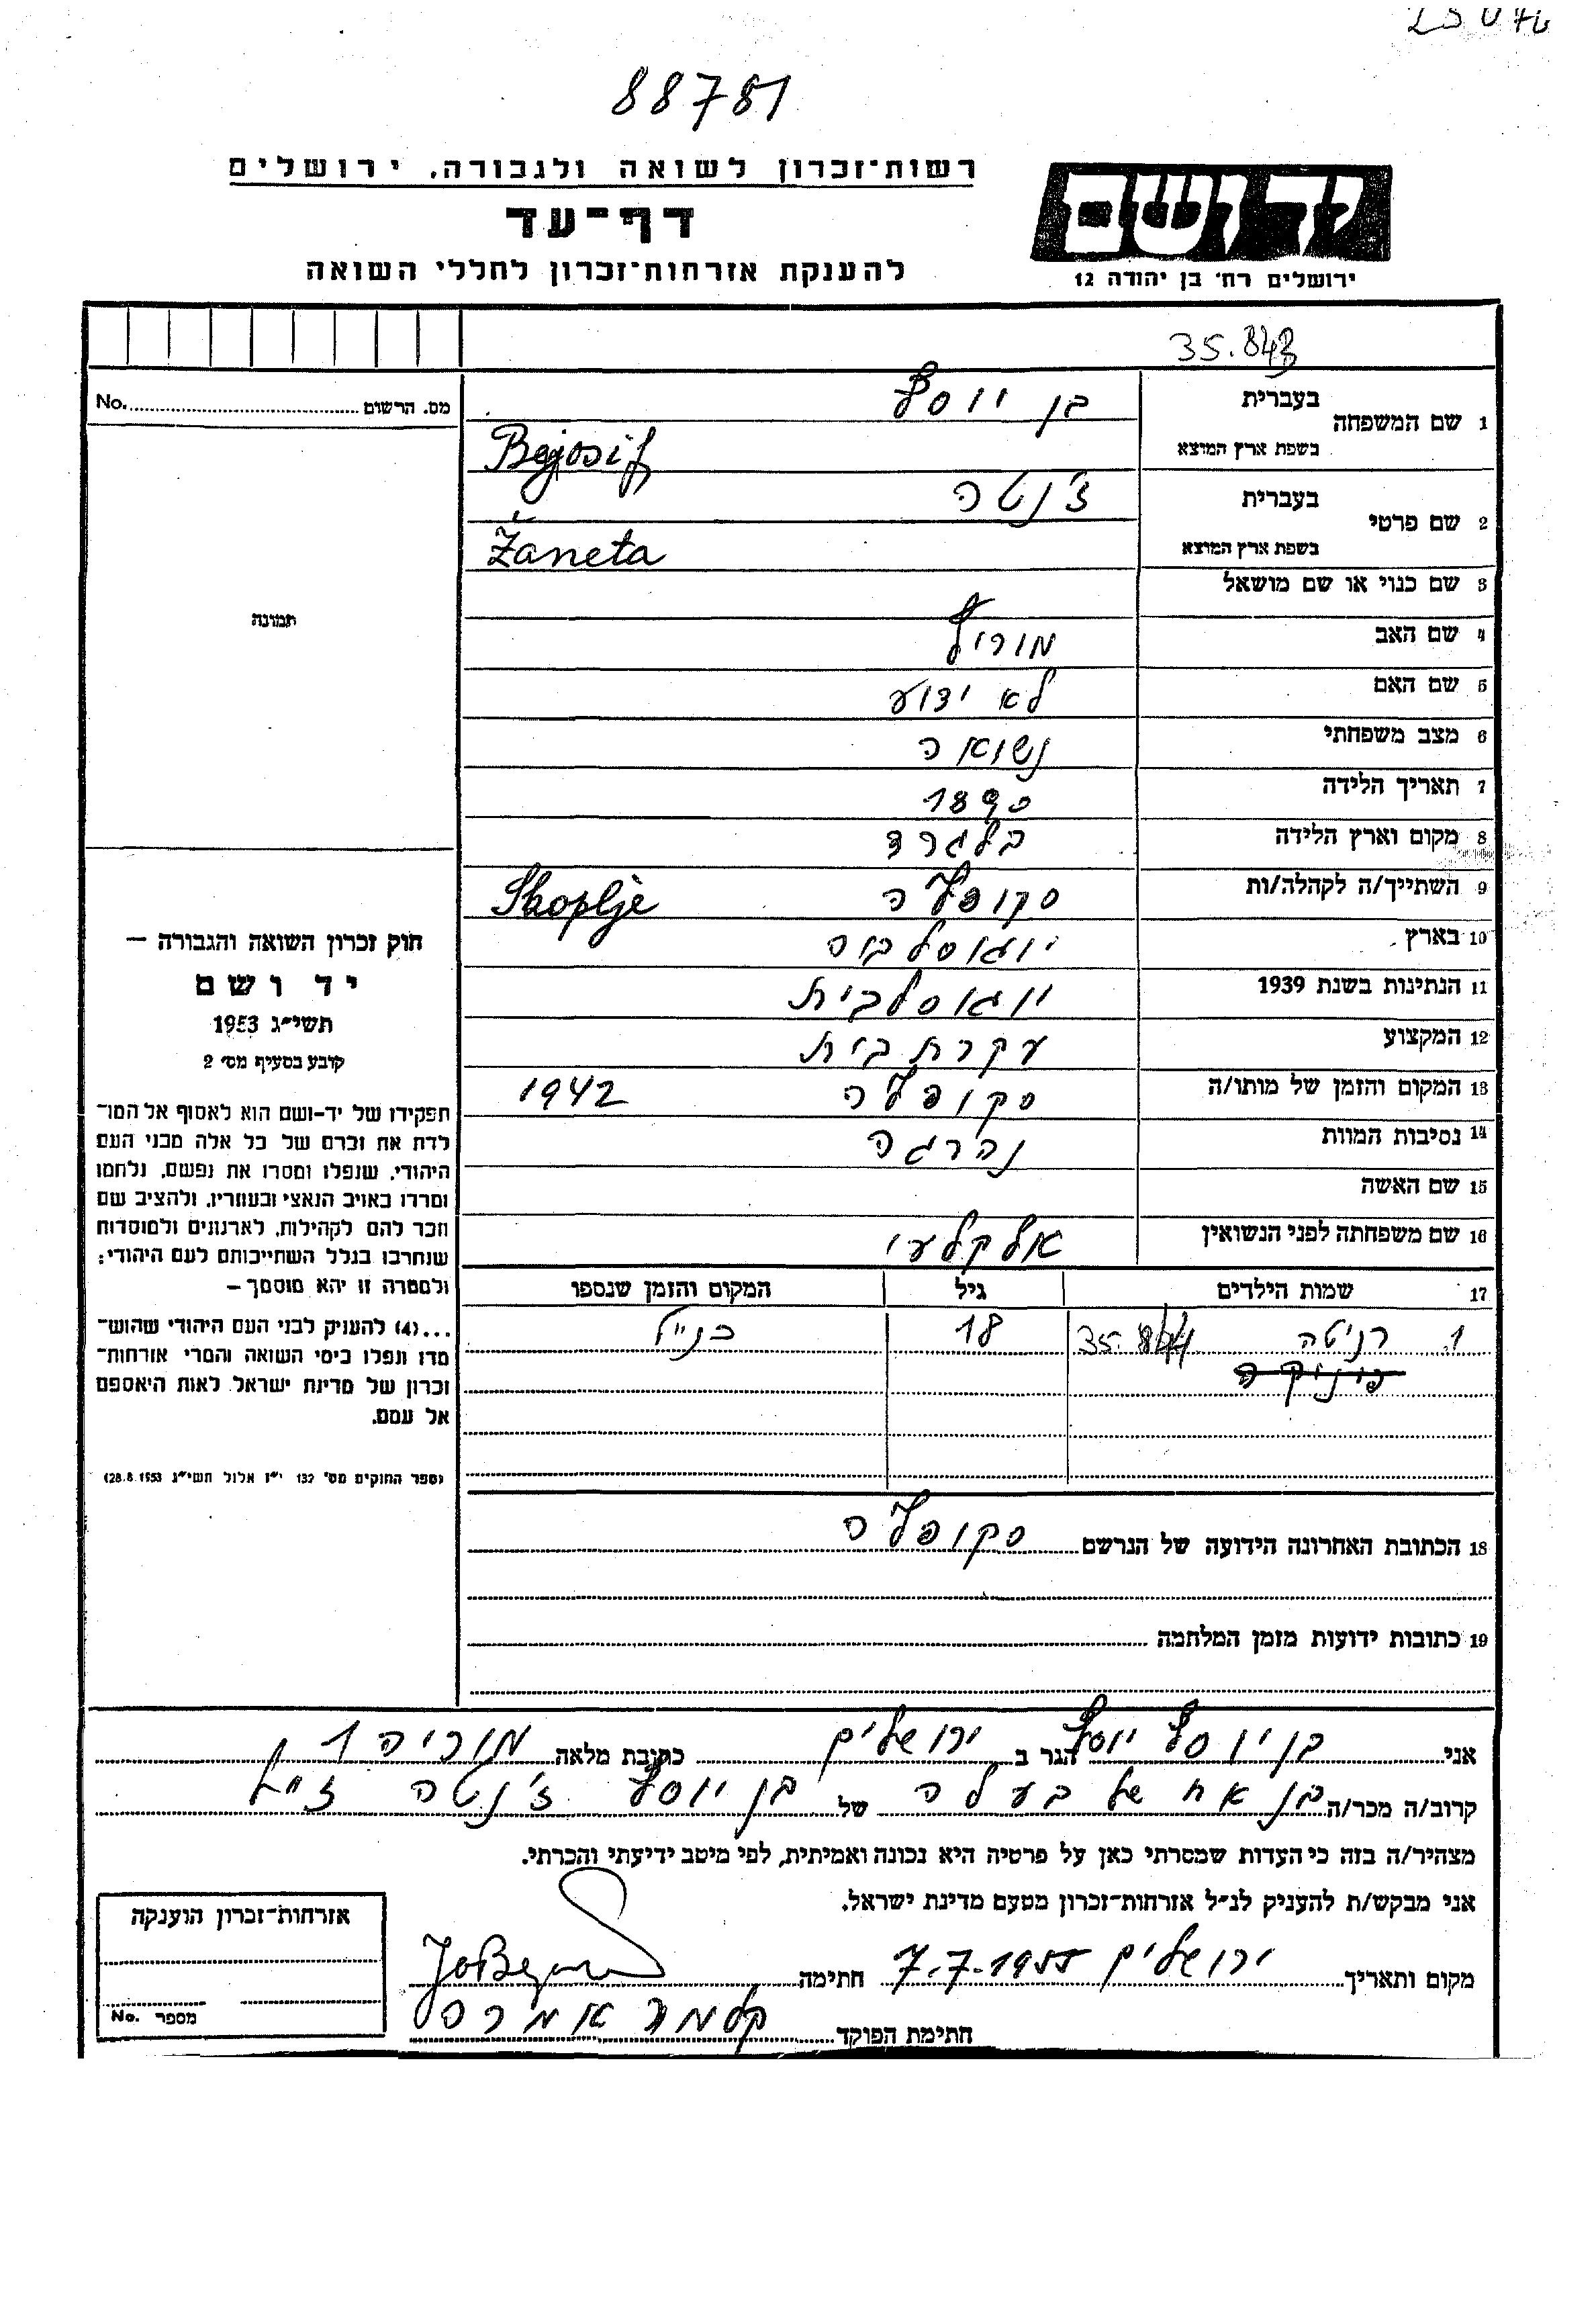 88781
רשות־זכרון לשואה ולגבורה. ירושלים
יד ושם
דף־עד
להענקת אזרחות־זכרון לחללי השואה
ירושלים רח׳ בן יהודה 12
35.843
No. מס. הרשום
1 שם המשפחה בעברית בן יוסף
בשפת ארץ המוצא Bejosif
2 שם פרטי בעברית ז׳נטה
בשפת ארץ המוצא Žaneta
3 שם כנוי או שם מושאל
תמונה
4 שם האב
5 שם האם לא ידוע
6 מצב משפחתי נשואה
7 תאריך הלידה 1890
8 מקום וארץ הלידה בלגרד
9 השתייך/ה לקהלה/ות סקופליה Skoplje
10 בארץ יוגוסלביה
11 הנתינות בשנת 1939 יוגוסלבית
12 המקצוע עקרת בית
13 המקום והזמן של מותו/ה סקופליה 1942
14 נסיבות המוות נהרגה
15 שם האשה
16 שם משפחתה לפני הנשואין אלקלעי
חוק זכרון השואה והגבורה –
יד ושם
תשי״ג 1953
קובע בסעיף מס׳ 2
תפקידו של יד-ושם הוא לאסוף אל המו־
לדת את זכרם של כל אלה מבני העם
היהודי, שנפלו ומסרו את נפשם, נלחמו
ומרדו באויב הנאצי ובעוזריו, ולהציב שם
וזכר להם לקהילות, לארגונים ולמוסדות
שנחרבו בגלל השתייכותם לעם היהודי;
ולמטרה זו יהא מוסמך –
...(4) להעניק לבני העם היהודי שהוש־
מדו ונפלו בימי השואה והמרי אזרחות־
זכרון של מדינת ישראל לאות היאספם
אל עמם.
(ספר החוקים מס׳ 132 י״ז אלול תשי״ג 28.8.1953)
17 שמות הילדים גיל המקום והזמן שנספו
1. רניטה 35.844 18 כנ״ל
18 הכתובת האחרונה הידועה של הנרשם סקופליה
19 כתובות ידועות מזמן המלחמה
אני בן יוסף יוסף הגר ב ירושלים כתובת מלאה מוריה 1
קרוב/ה מכר/ה בן אח של בעלה של בן יוסף ז׳נטה ז״ל
מצהיר/ה בזה כי העדות שמסרתי כאן על פרטיה היא נכונה ואמיתית, לפי מיטב ידיעתי והכרתי.
אני מבקש/ת להעניק לנ״ל אזרחות־זכרון מטעם מדינת ישראל.
מקום ותאריך ירושלים 7.7.1955 חתימה
חתימת הפוקד
אזרחות־זכרון הוענקה
מספר No.